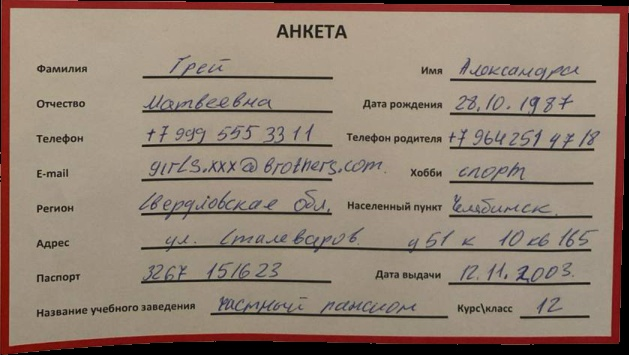 АНКЕТА
Фамилия Грей Имя Александра
Отчество Матвеевна Дата рождения 28.10.1987
Телефон +7 999 555 33 11 Телефон родителя +7 964 251 47 18
E-mail girls.xxx@brothers.com. Хобби спорт
Регион Свердловская обл. Населенный пункт Челябинск
Адрес ул. Сталеваров д 51 к 10 кв 165
Паспорт 3267 151623 Дата выдачи 12.11.2003.
Название учебного заведения частный пансион Курс\класс 12